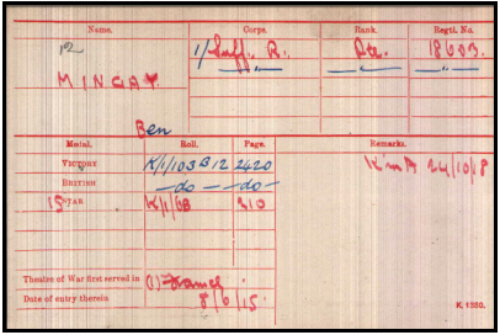 Name. Corps. Rank. Regtl. No.
1/ Suff. R. Pte. 18603.
" " "
MINGAY.
Ben
Medal. Roll. Page. Remarks.
VICTORY K/1/103 B12 2420 K in A 24/10/18
BRITISH —do— —do—
15 STAR K/1/6B 210
Theatre of War first served in (1) France
Date of entry therein 8/6/15.
K. 1380.